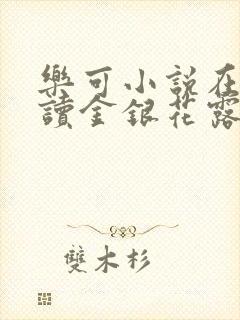 樂可小說在
讀金銀花露
雙木杉